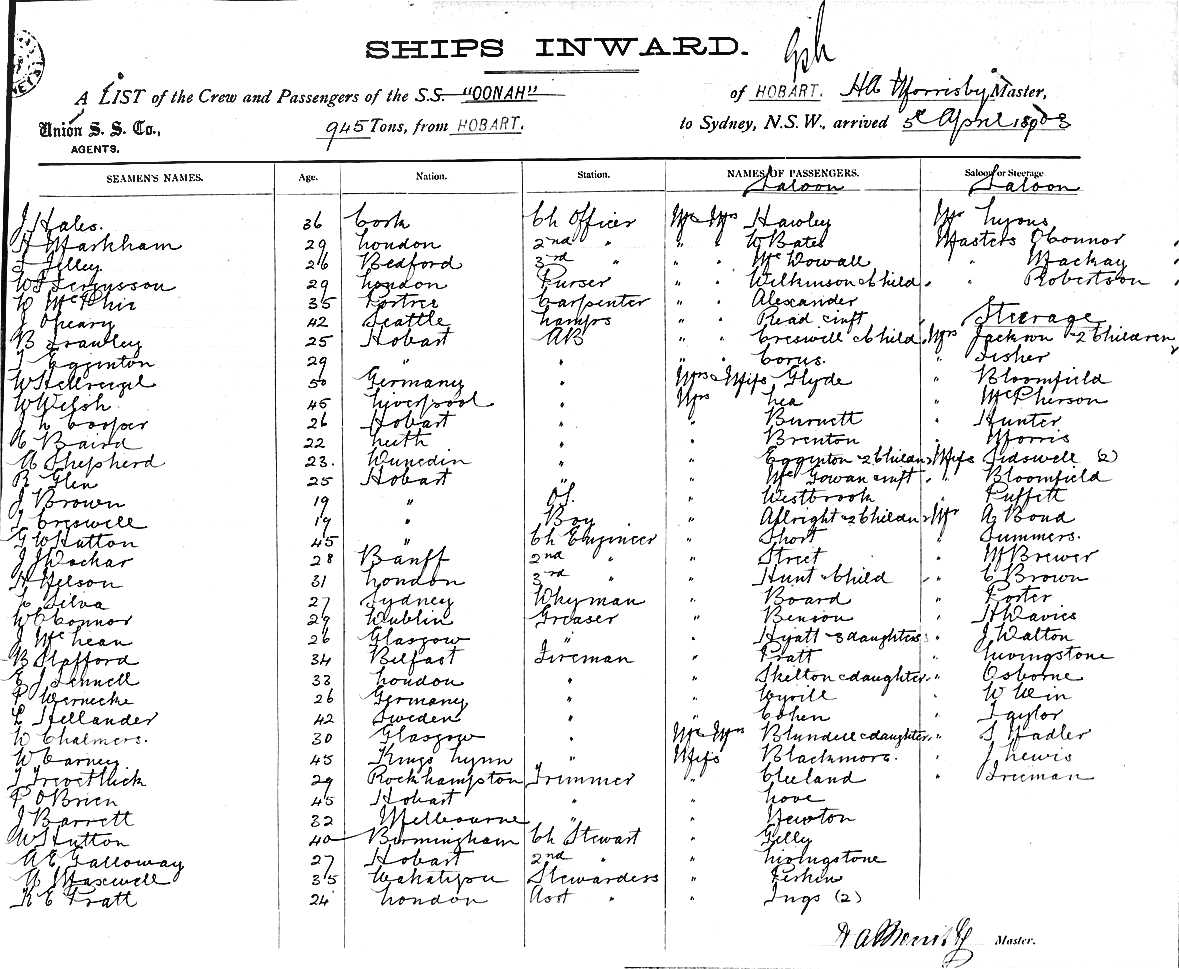 SHIPS INWARD.
A LIST of the Crew and Passengers of the S.S. "OONAH" of HOBART. HA Morrisby Master,
Union S. S. Co., 945 Tons, from HOBART. to Sydney, N.S.W., arrived 5th April 1903
AGENTS.
SEAMEN'S NAMES. Age. Nation. Station. NAMES OF PASSENGERS. Saloon or Steerage
Saloon Saloon
J Hales. 36 Cork Ch Officer Mr & Mrs Hawley Mr Lyons
H Markham 29 London 2nd " " " W Bates Masters O'Connor
Tilley 26 Bedford 3rd " " " McDowall " Mackay
W Fergusson 29 London Purser " " Wilkinson & Child " Robertson
McPhie 35 Portree Carpenter " " Alexander
J Opeary 42 Seattle Lamps " " Read & inft Steerage
B Frawley 25 Hobart AB " " Creswell & Child Mrs Jackson & 2 Children
T Egginton 29 " " " " Corus. " Fisher
W 50 Germany " Mrs & Miss Glyde " Bloomfield
W Welsh 45 Liverpool " Mrs Lea " McPherson
J L Cooper 26 Hobart " " Burnett " Hunter
Baird 22 Leith " " Brenton " Morris
A Shepherd 23. Dunedin " " Egginton & 2 Children Miss Tidswell (2)
R Glen 25 Hobart " " McGowan & inft " Bloomfield
J Brown 19 " OS. " Westbrook " Puffett
T Creswell 19 " Boy " Albright & 2 Children Mr A Bond
G W Hutton 45 " Ch Engineer " Short " Summers.
J Wachar 28 Banff 2nd " " Street " W Brewer
H Nelson 31 London 3rd " " Hunt & Child " C Brown
Silva 27 Sydney Whyman " Board " Foster
W O'Connor 29 Dublin Greaser " Benson " H Davies
J McLean 26 Glasgow " " Hyatt & 3 daughters " J Walton
B Stafford 34 Belfast Fireman " Pratt " Livingstone
E J Sennell 33 London " " Skelton & daughter " Osborne
P Wernecke 26 Germany " " Cyrill " W Wein
Hellander 42 Sweden " " Cohen " Taylor
W Chalmers. 30 Glasgow " Mr & Mrs Blundell & daughter " S Hadler
W Carney 45 Kings Lynn " Miss Blackmore. " J Lewis
29 Rockhampton Trimmer " Cleeland " Freeman
P O'Brien 45 Hobart " " Love
J Barrett 32 Melbourne " " Newton
W Hutton 40 Birmingham Ch Stewart " Gilly
A E Galloway 27 Hobart 2nd " " Livingstone
Maxwell 35 Wakatipu Stewardess " Ferkin
R E Pratt 24 London Asst " " Ings (2)
H A Morrisby Master.